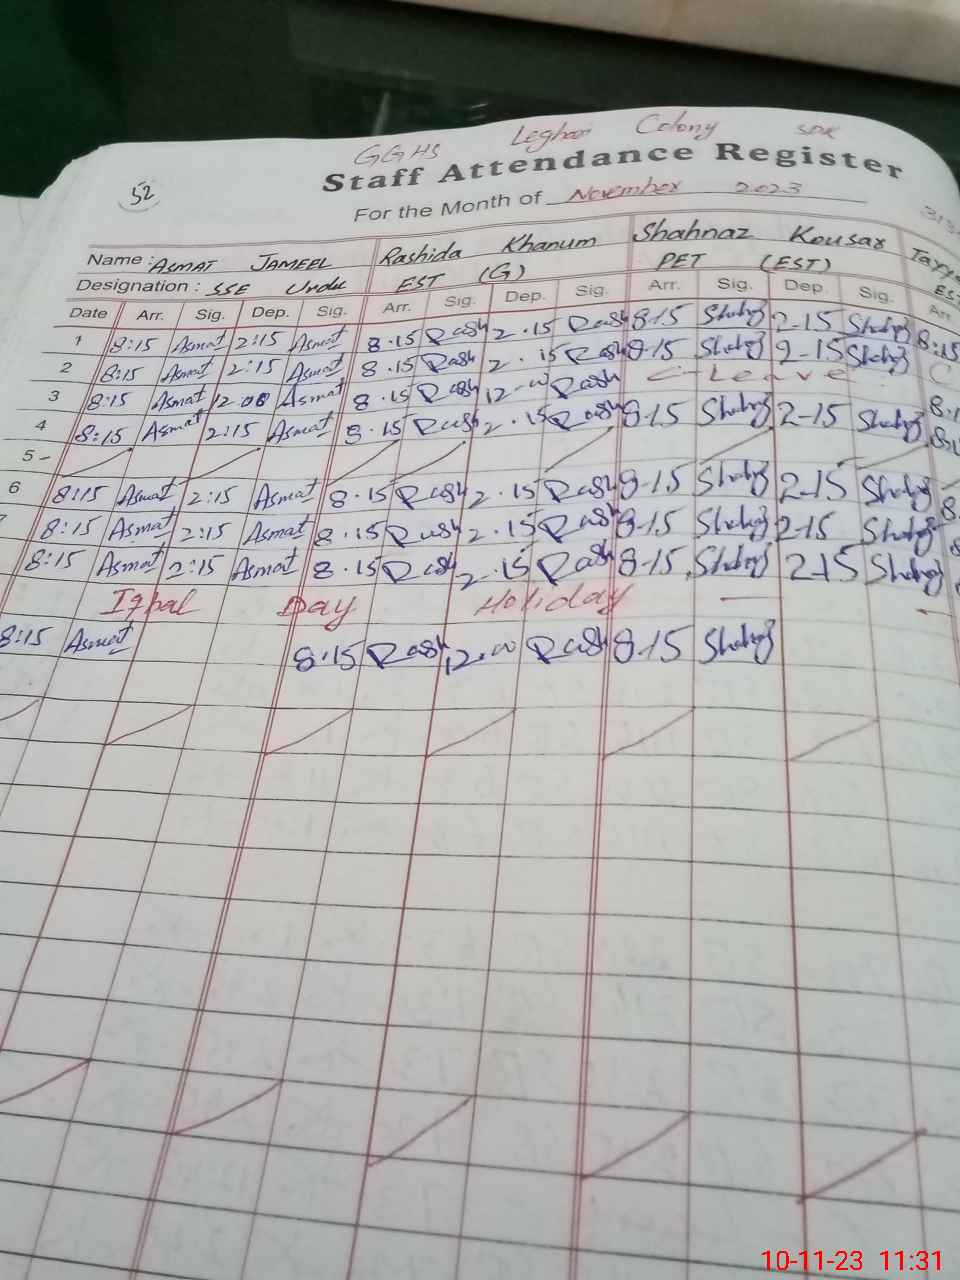 GGHS Leghari Colony SDK
Staff Attendance Register
52
For the Month of November 2023
Name : ASMAT JAMEEL Rashida Khanum Shahnaz Kousar
Designation : SSE Urdu EST (G) PET (EST)
Date Arr. Sig. Dep. Sig. Arr. Sig. Dep. Sig. Arr. Sig. Dep. Sig. Arr.
1 8:15 Asmat 2:15 Asmat 8.15 Rash 2.15 Rash 8-15 Shahnaz 2-15 Shahnaz 8:15
2 8:15 Asmat 2:15 Asmat 8.15 Rash 2.15 Rash 8-15 Shahnaz 2-15 Shahnaz
3 8:15 Asmat 12:00 Asmat 8.15 Rash 12-00 Rash C-Leave
4 8:15 Asmat 2:15 Asmat 8.15 Rash 2.15 Rash 8-15 Shahnaz 2-15 Shahnaz
5 -
6 8:15 Asmat 2:15 Asmat 8.15 Rash 2.15 Rash 8-15 Shahnaz 2-15 Shahnaz
8:15 Asmat 2:15 Asmat 8.15 Rash 2.15 Rash 8-15 Shahnaz 2-15 Shahnaz
8:15 Asmat 2:15 Asmat 8.15 Rash 2.15 Rash 8-15 Shahnaz 2-15 Shahnaz
Iqbal Day Holiday
8:15 Asmat 8.15 Rash 12.00 Rash 8-15 Shahnaz
10-11-23 11:31